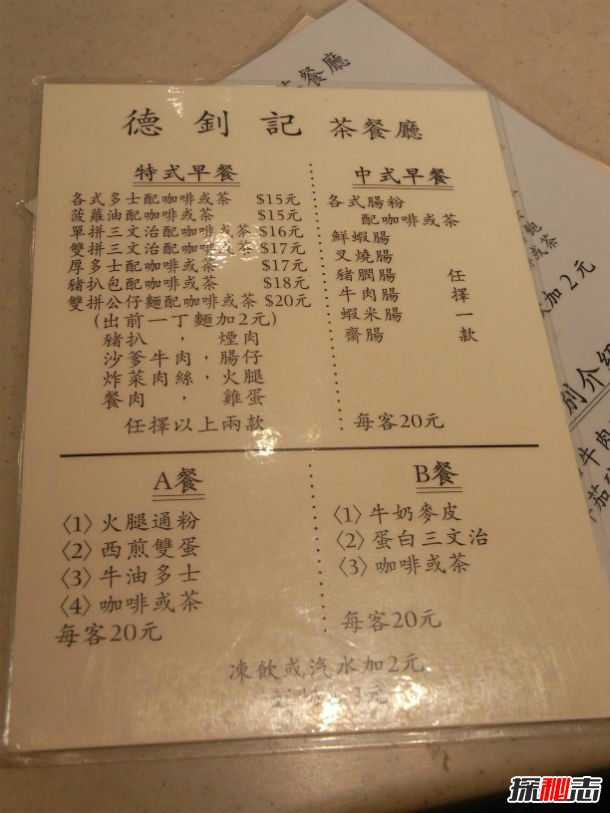 茶餐廳
德釗記 茶餐廳
特式早餐
各式多士配咖啡或茶 $15元
菠蘿油配咖啡或茶 $15元
單拼三文治配咖啡或茶 $16元
雙拼三文治配咖啡或茶 $17元
厚多士配咖啡或茶 $17元
豬扒包配咖啡或茶 $18元
雙拼公仔麵配咖啡或茶 $20元
(出前一丁麵加2元)
豬扒,煙肉
沙爹牛肉,腸仔
炸菜肉絲,火腿
餐肉,雞蛋
任擇以上兩款
中式早餐
各式腸粉
配咖啡或茶
鮮蝦腸
叉燒腸
豬膶腸 任
牛肉腸 擇
蝦米腸 一
齋腸 款
每客20元
A餐
〈1〉火腿通粉
〈2〉西煎雙蛋
〈3〉牛油多士
〈4〉咖啡或茶
每客20元
B餐
〈1〉牛奶麥皮
〈2〉蛋白三文治
〈3〉咖啡或茶
每客20元
凍飲或汽水加2元
3元
或茶
加2元
別介紹
牛肉
探秘志